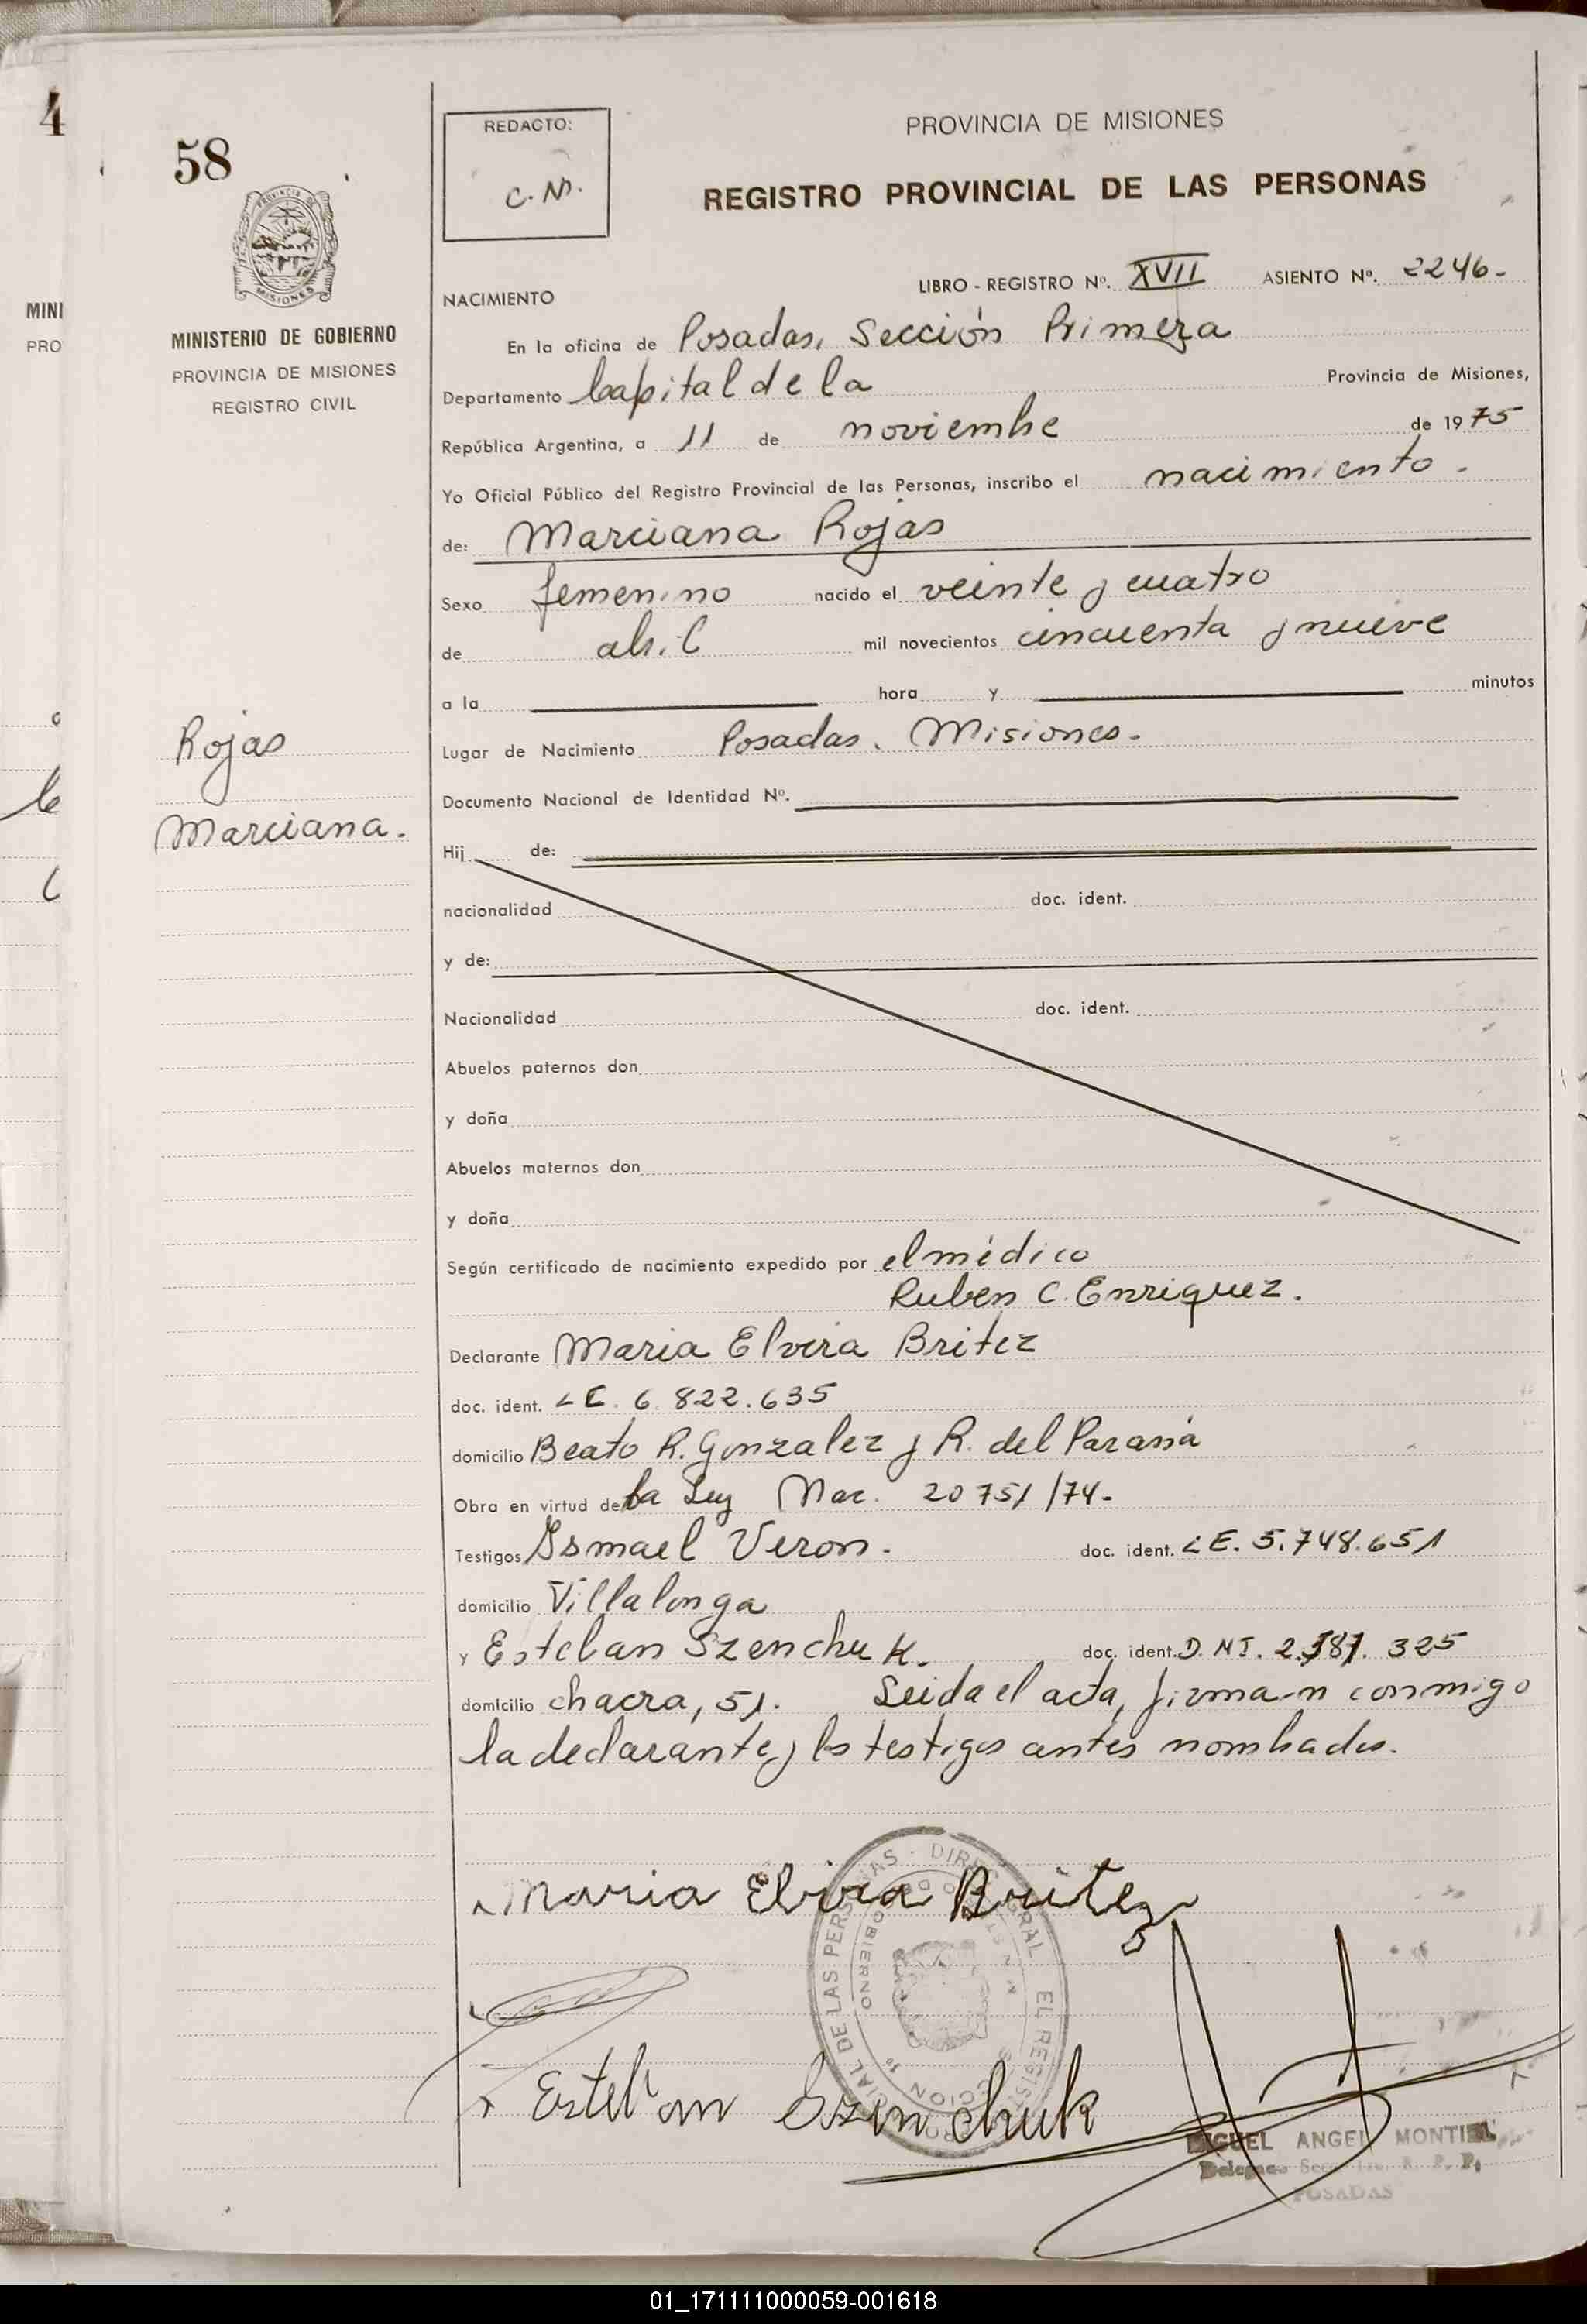 4
58
MINI
PRO
PROVINCIA DE
MISIONES
MINISTERIO DE GOBIERNO
PROVINCIA DE MISIONES
REGISTRO CIVIL
Rojas
Marciana.
REDACTO:
PROVINCIA DE MISIONES
REGISTRO PROVINCIAL DE LAS PERSONAS
LIBRO - REGISTRO Nº. XVII ASIENTO Nº. 2246-
NACIMIENTO
En la oficina de Posadas, Sección Primera
Departamento Capital de la Provincia de Misiones,
República Argentina, a 11 de noviembre de 1975
Yo Oficial Público del Registro Provincial de las Personas, inscribo el nacimiento.
de: Marciana Rojas
Sexo femenino nacido el veinte y cuatro
de abril mil novecientos cincuenta y nueve
a la hora y minutos
Lugar de Nacimiento Posadas. Misiones.
Documento Nacional de Identidad Nº.
Hij de:
nacionalidad doc. ident.
y de:
Nacionalidad doc. ident.
Abuelos paternos don
y doña
Abuelos maternos don
y doña
Según certificado de nacimiento expedido por el médico
Ruben C. Enriquez.
Declarante Maria Elvira Britez
doc. ident. LC. 6.822.635
domicilio Beato R. Gonzalez y R. del Paraná
Obra en virtud de la Ley Nac. 20751/74.
Testigos Ismael Veron. doc. ident. LE. 5.748.651
domicilio Villalonga
y Esteban Szenchuk. doc. ident. D.N.I. 325
domicilio chacra, 51. Leida el acta, firman conmigo
la declarante y los testigos antes nombrados.
Maria Elvira Britez
Esteban Szenchuk
DE LAS PERSONAS - DIREC GRAL EL REGIST
GOBIERNO
MIGUEL ANGEL MONTIEL
R. P. P.
POSADAS
01_171111000059-001618